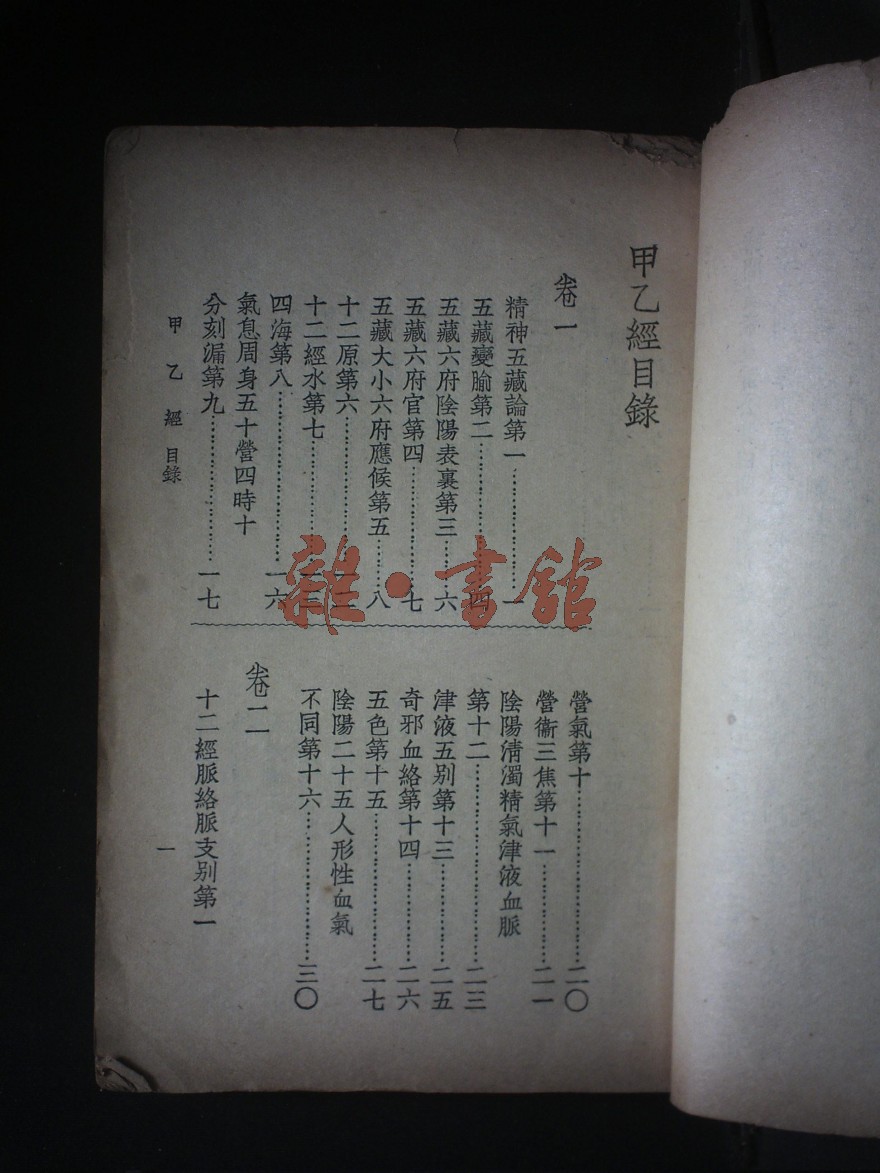 甲乙經目錄
卷一
精神五藏論第一…………………一
五藏變腧第二…………………四
五藏六府陰陽表裏第三………六
五藏六府官第四………………七
五藏大小六府應候第五………八
十二原第六…………………一二
十二經水第七………………一三
四海第八……………………一六
氣息周身五十營四時十
分刻漏第九…………………一七
營氣第十……………………二〇
營衞三焦第十一……………二一
陰陽淸濁精氣津液血脈
第十二………………………二三
津液五别第十三……………二五
奇邪血絡第十四……………二六
五色第十五…………………二七
陰陽二十五人形性血氣
不同第十六…………………三〇
卷二
十二經脈絡脈支别第一
甲乙經 目錄
一
雜·書館